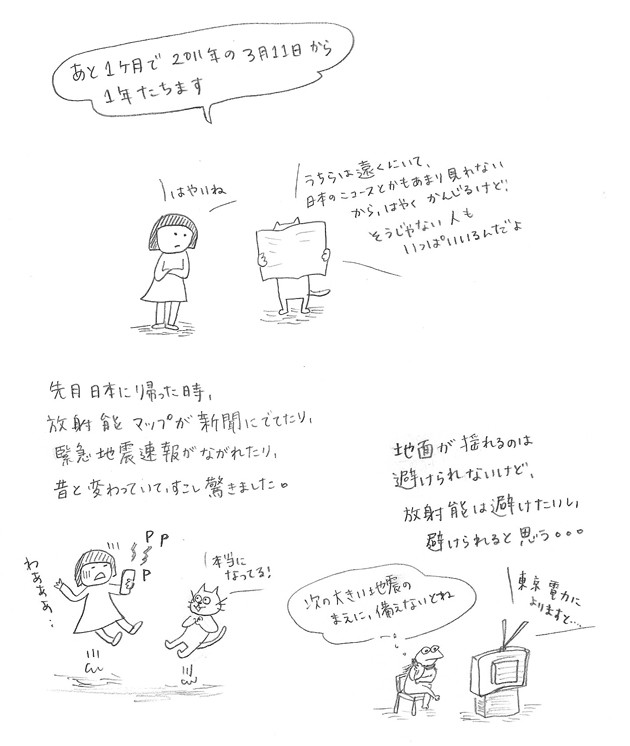 あと1ケ月で2011年の3月11日から
1年たちます
はやいね
うちらは遠くにいて、
日本のニュースとかもあまり見れない
から、はやくかんじるけど、
そうじゃない人も
いっぱいいるんだよ
先月日本に帰った時、
放射能マップが新聞にでてたり、
緊急地震速報がながれたり、
昔と変わっていて、すこし驚きました。
P P
P
わぁぁぁ…
本当に
なってる!
地面が揺れるのは
避けられないけど、
放射能は避けたいし、
避けられると思う。。。
次の大きい地震の
まえに、備えないとね
東京電力に
よりますと…